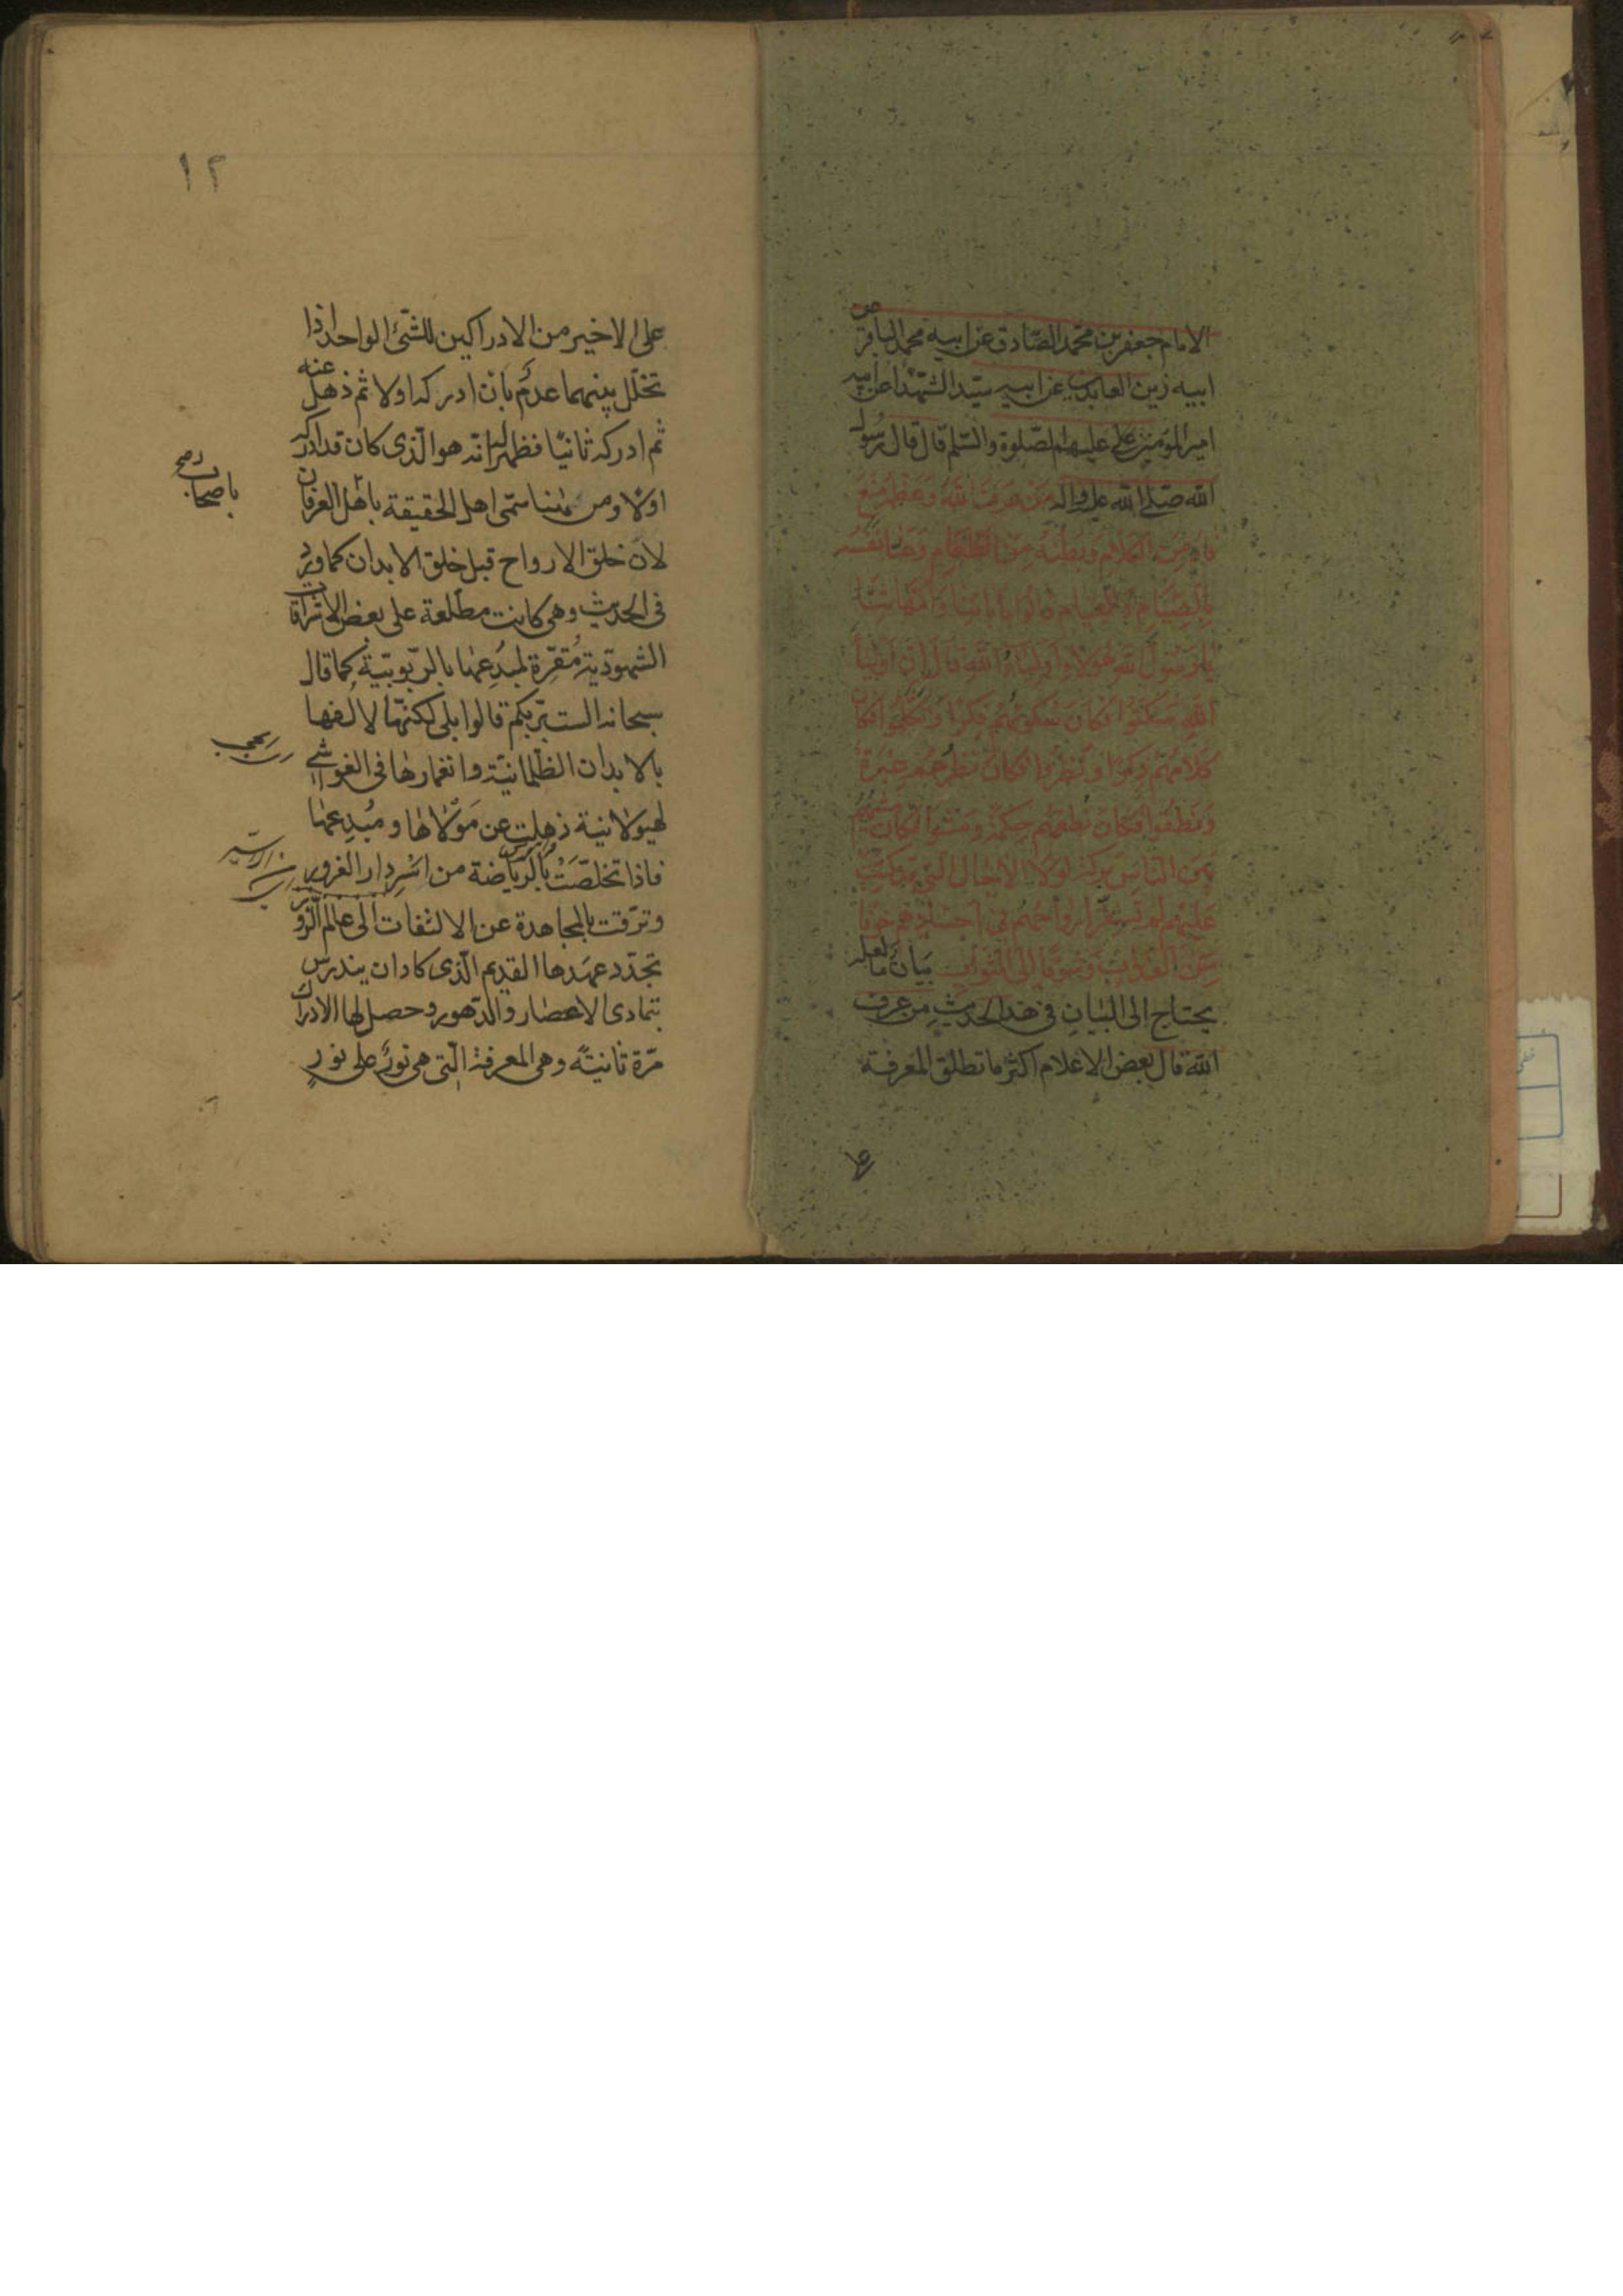 الامام جعفر بن محمّد الصّادق عن ابيه محمد الباقر عن
ابيه زين العابدين عن ابيه سيّد الشّهدا عن ابيه
امير المومنين على عليهم الصّلوة والسّلم قال قال رسول
الله صلّى الله عليه واله من عرف الله وعظمه منع
فاه من الكلام وبطنه من الطّعام وعنا نفسه
بالصّيام والقيام قالوا بابائنا وامّهاتنا
يا رسول الله هؤلاء اولياء الله قال انّ اولياء
الله سكتوا فكان سكوتهم فكرا وتكلّموا فكان
كلامهم ذكرا ونظروا فكان نظرهم عبرة
ونطقوا فكان نطقهم حكمة ومشوا فكان مشيهم
بين النّاس بركة لولا الاجال الّتى قد كتبت
عليهم لم تستقرّ ارواحهم فى اجسادهم خوفا
من العذاب وشوقا الى الثّواب بيان ما لعلّه
يحتاج الى البيان فى هذا الحديث من عرف
الله قال بعض الاعلام اكثر ما تطلق المعرفة
على
١٢
على الاخير من الادراكين للشّىء الواحد اذا
تخلّل بينهما عدم بان ادركه اولا ثم ذهل عنه
ثم ادركه ثانيًا فظهر له انّه هو الّذى كان قد ادركه
اولًا ومن هٰهنا سمّى اهل الحقيقة باهل العرفان
باصحاب صح
لانّ خلق الارواح قبل خلق الابدان كما ورد
فى الحديث وهى كانت مطّلعة على بعض الاشراقات
الشهوديّة مُقرّة لمبُدِعها بالرّبوبيّة كما قال
سبحانه الست بربّكم قالوا بلى لكنّها لالفها
بالابدان الظّلمانيّة وانغمارها فى الغواشى
الهيولانية ذهلت عن مَوْلاها ومُبدِعها
فاذا تخلصّتْ بالرّياضة من اسْرِ دار الغرور
وترقّت بالمجاهدة عن الالتفات الى عالم الزّور
تجدّد عهدها القديم الّذى كاد ان يندرس
بتمادى الاعصار والدّهور وحصل لها الادراك
مرّة ثانيّةً وهى المعرفة الّتى هى نورٌ على نورٍ